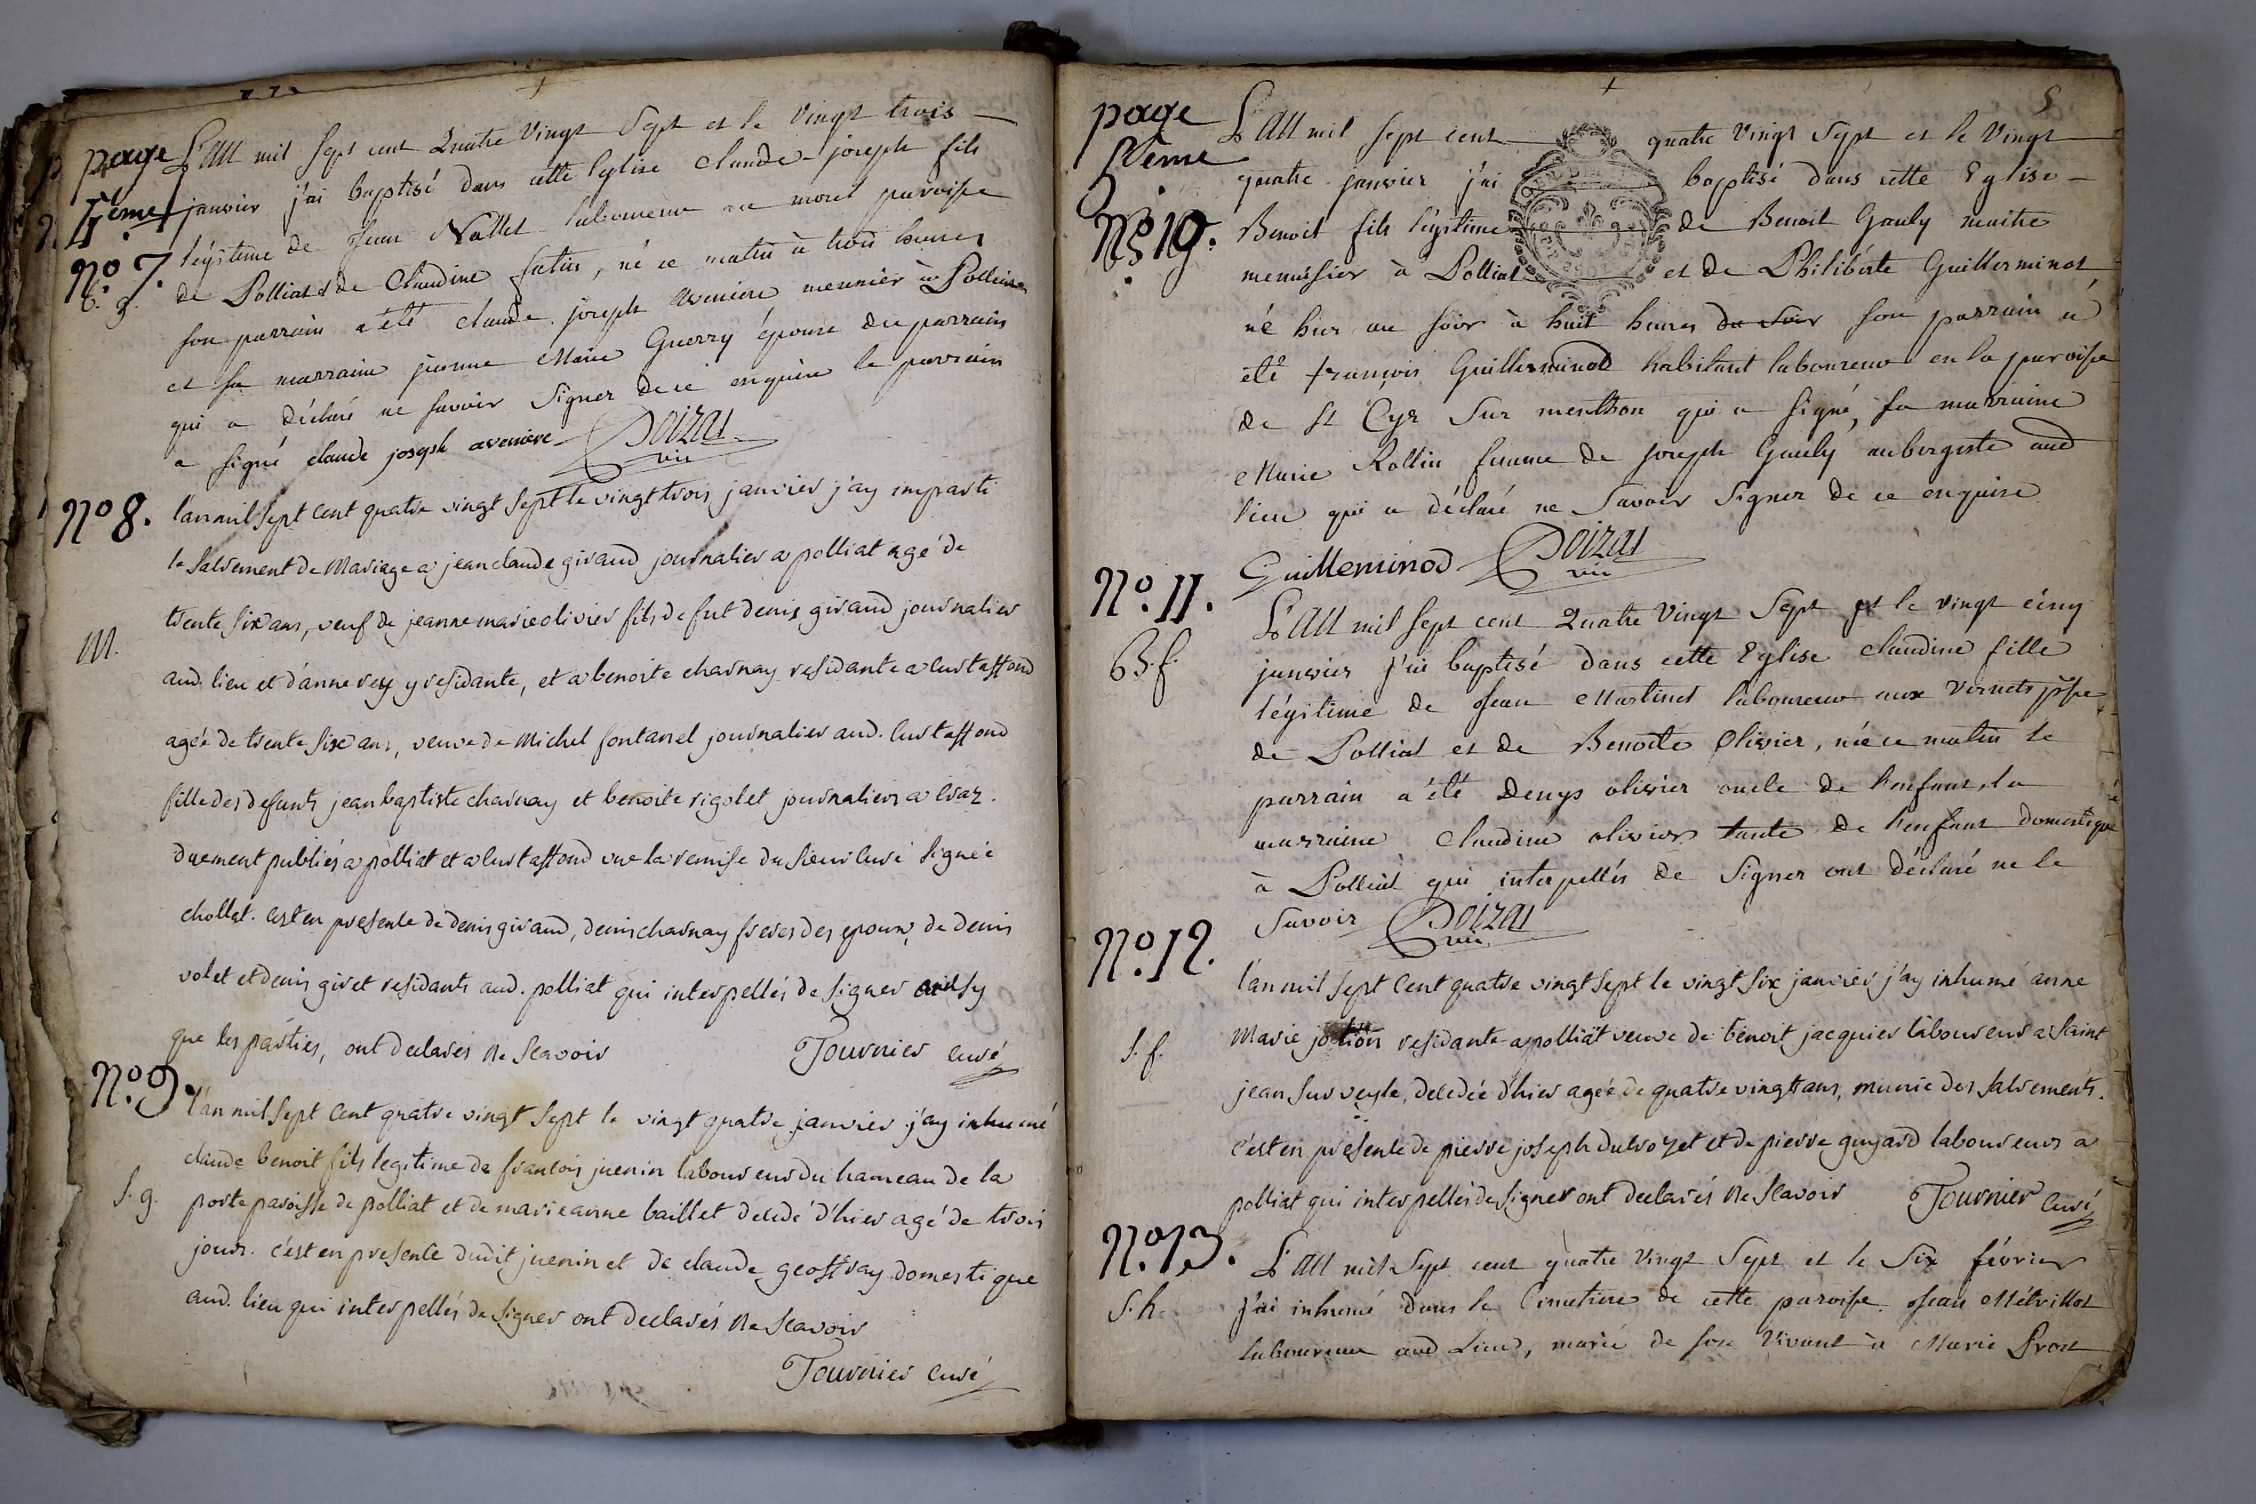 page
4ème
L'an mil sept cent Quatre Vingt Sept et le vingt trois
janvier j'ai baptisé dans cette Eglise claude-joseph fils
légitime de Jean Nallet laboureur au morel paroisse
N° 7.
b. g.
de Polliat et de Claudine, né ce matin à trois heures
son parrain a été claude joseph aveniere meunier à Polliat
et sa marraine jeanne Marie Guerry épouse du parrain
qui a déclaré ne savoir signer de ce enquise le parrain
a signé claude joseph aveniere Doizat
vic
N° 8.
M.
l'an mil sept cent quatre vingt sept le vingt trois janvier j'ay imparti
le sacrement de Mariage a jean claude giraud journalier a polliat agé de
trente six ans, veuf de jeanne marie olivier fils de fut denis giraud journalier
aud. lieu et d'anne rey y residante, et a benoite charnay residante a curtaffond
agée de trente six ans, veuve de Michel fontanel journalier aud. curtaffond
fille des defunts jean baptiste charnay et benoite rigolet journaliers a craz.
duement publiés a polliat et a curtaffond vue la remise du sieur curé signée
chollet. c'est en presence de denis giraud, denis charnay freres des epoux, de denis
volet et denis givet residants aud. polliat qui interpellés de signer ainsy
que les parties, ont declarés ne scavoir Tournier curé
N° 9.
S. g.
l'an mil sept cent quatre vingt sept le vingt quatre janvier j'ay inhumé
claude benoit fils legitime de francois juenin laboureur du hameau de la
poste paroisse de polliat et de marie anne baillet decedé d'hier agé de trois
jours. c'est en presence dudit juenin et de claude geoffray domestique
aud. lieu qui interpellés de signer ont declarés ne scavoir
Tournier curé
5
page
5ème
N° 10.
L'an mil sept cent quatre vingt sept et le vingt
quatre janvier j'ai baptisé dans cette Eglise
Benoit fils légitime de Benoit Gauly maitre
menuisier à Polliat et de Philiberte Guilleminot
né hier au soir à huit heures du soir son parrain a
été françois Guilleminod habitant laboureur en la paroisse
de St Cyr sur menthon qui a signé, sa marraine
Marie Rollin femme de joseph Gauly aubergiste aud
lieu qui a déclaré ne savoir signer de ce enquise
Guilleminod Doizat
vic
N° 11.
B. f.
L'an mil sept cent Quatre Vingt Sept et le vingt cinq
janvier j'ai baptisé dans cette Eglise claudine fille
légitime de Jean Martinet laboureur aux vernets psse
de Polliat et de Benoite Olivier, née ce matin le
parrain a été Denys olivier oncle de l'enfant, la
marraine claudine olivier tante de l'enfant domestique
à Polliat qui interpellés de signer ont déclaré ne le
savoir Doizat
vic
N° 12.
S. f.
l'an mil sept cent quatre vingt sept le vingt six janvier j'ay inhumé anne
Marie residante a polliat veuve de benoit jacquier laboureur a saint
jean sur veyle, decedée d'hier agée de quatre vingt ans, munie des sacrements.
c'est en presence de pierre joseph dutrozet et de pierre guyard laboureurs a
polliat qui interpellés de signer ont declarés ne scavoir Tournier curé
N° 13.
S. h.
L'an mil sept cent quatre vingt sept et le six février
j'ai inhumé dans le Cimetiere de cette paroisse Jean Métrillot
laboureur aud lieu, marié de son vivant à Marie Prost